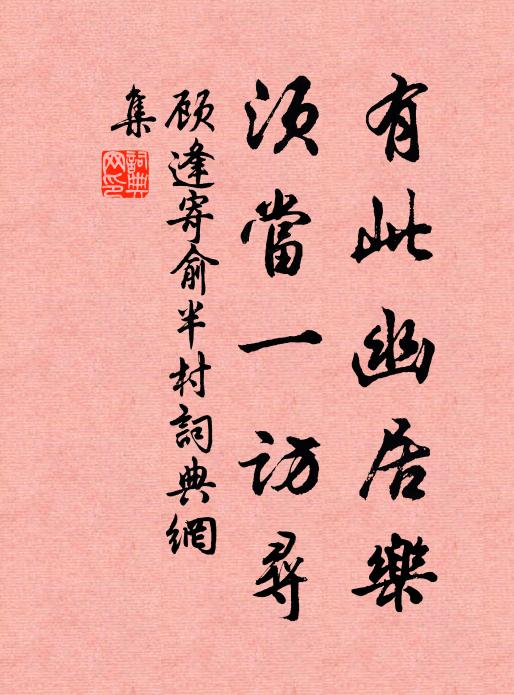 有此幽居樂
須當一訪尋
顧逢寄俞半村詞典網
集
詞典
网印